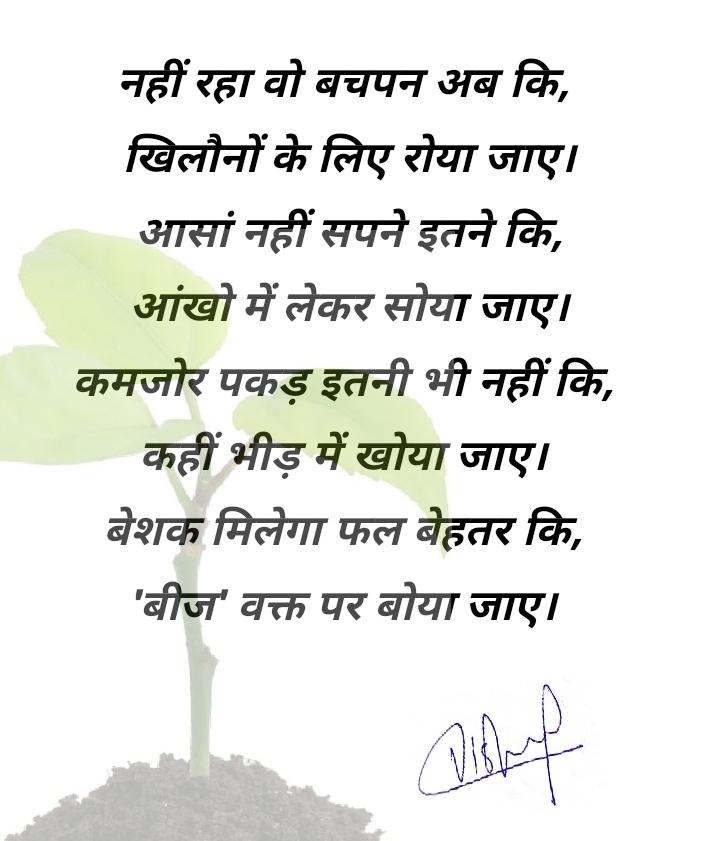 नहीं रहा वो बचपन अब कि,
खिलौनों के लिए रोया जाए।
आसां नहीं सपने इतने कि,
आंखो में लेकर सोया जाए।
कमजोर पकड़ इतनी भी नहीं कि,
कहीं भीड़ में खोया जाए।
बेशक मिलेगा फल बेहतर कि,
'बीज' वक्त पर बोया जाए।